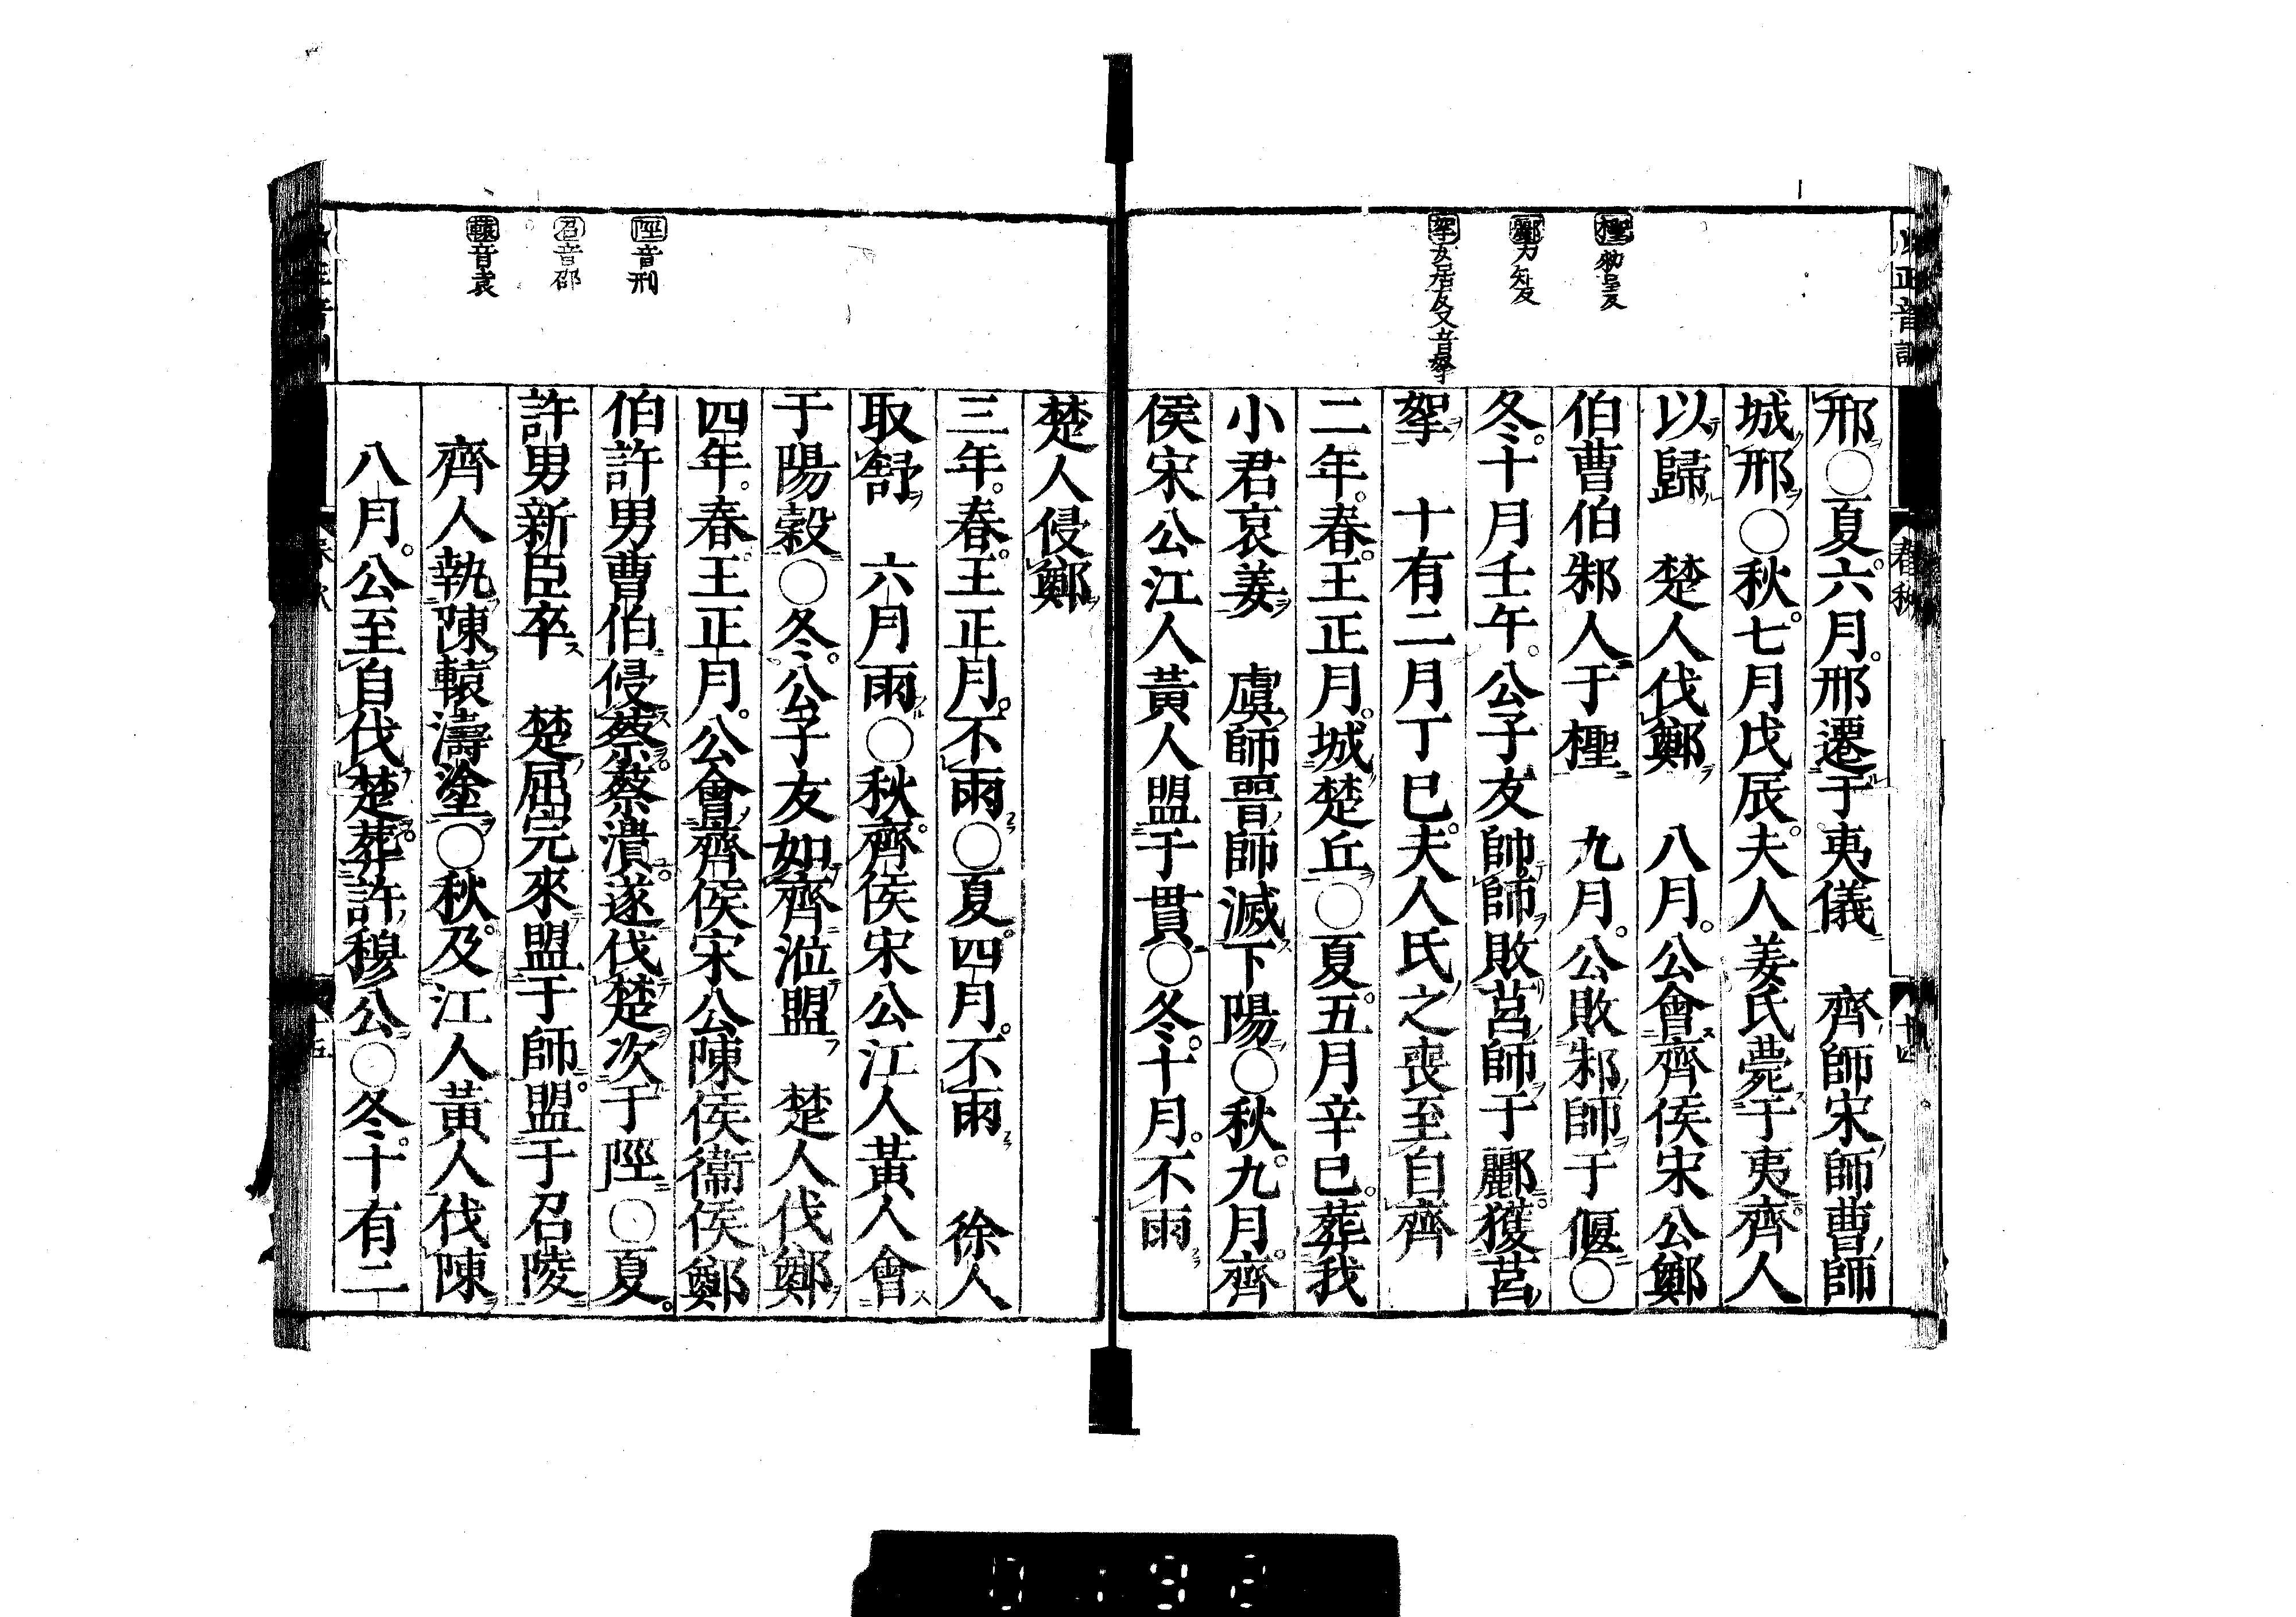 檉勑呈反
酈力知反
挐女居反又音拏
邢○夏六月邢遷于夷儀　齊師宋師曹師
城邢○秋七月戊辰夫人姜氏薨于夷齊人
以歸　楚人伐鄭　八月公會齊侯宋公鄭
伯曹伯邾人于檉　九月公敗邾師于偃○
冬十月壬午公子友帥師敗莒師于酈獲莒
挐　十有二月丁巳夫人氏之喪至自齊
二年春王正月城楚丘○夏五月辛巳葬我
小君哀姜　虞師晉師滅下陽○秋九月齊
侯宋公江人黃人盟于貫○冬十月不雨
春秋
陘音刑
召音邵
轅音袁
楚人侵鄭
三年春王正月不雨○夏四月不雨　徐人
取舒　六月雨○秋齊侯宋公江人黃人會
于陽穀○冬公子友如齊涖盟　楚人伐鄭
四年春王正月公會齊侯宋公陳侯衞侯鄭
伯許男曹伯侵蔡蔡潰遂伐楚次于陘○夏
許男新臣卒　楚屈完來盟于師盟于召陵
齊人執陳轅濤塗○秋及江人黃人伐陳
八月公至自伐楚葬許穆公○冬十有二